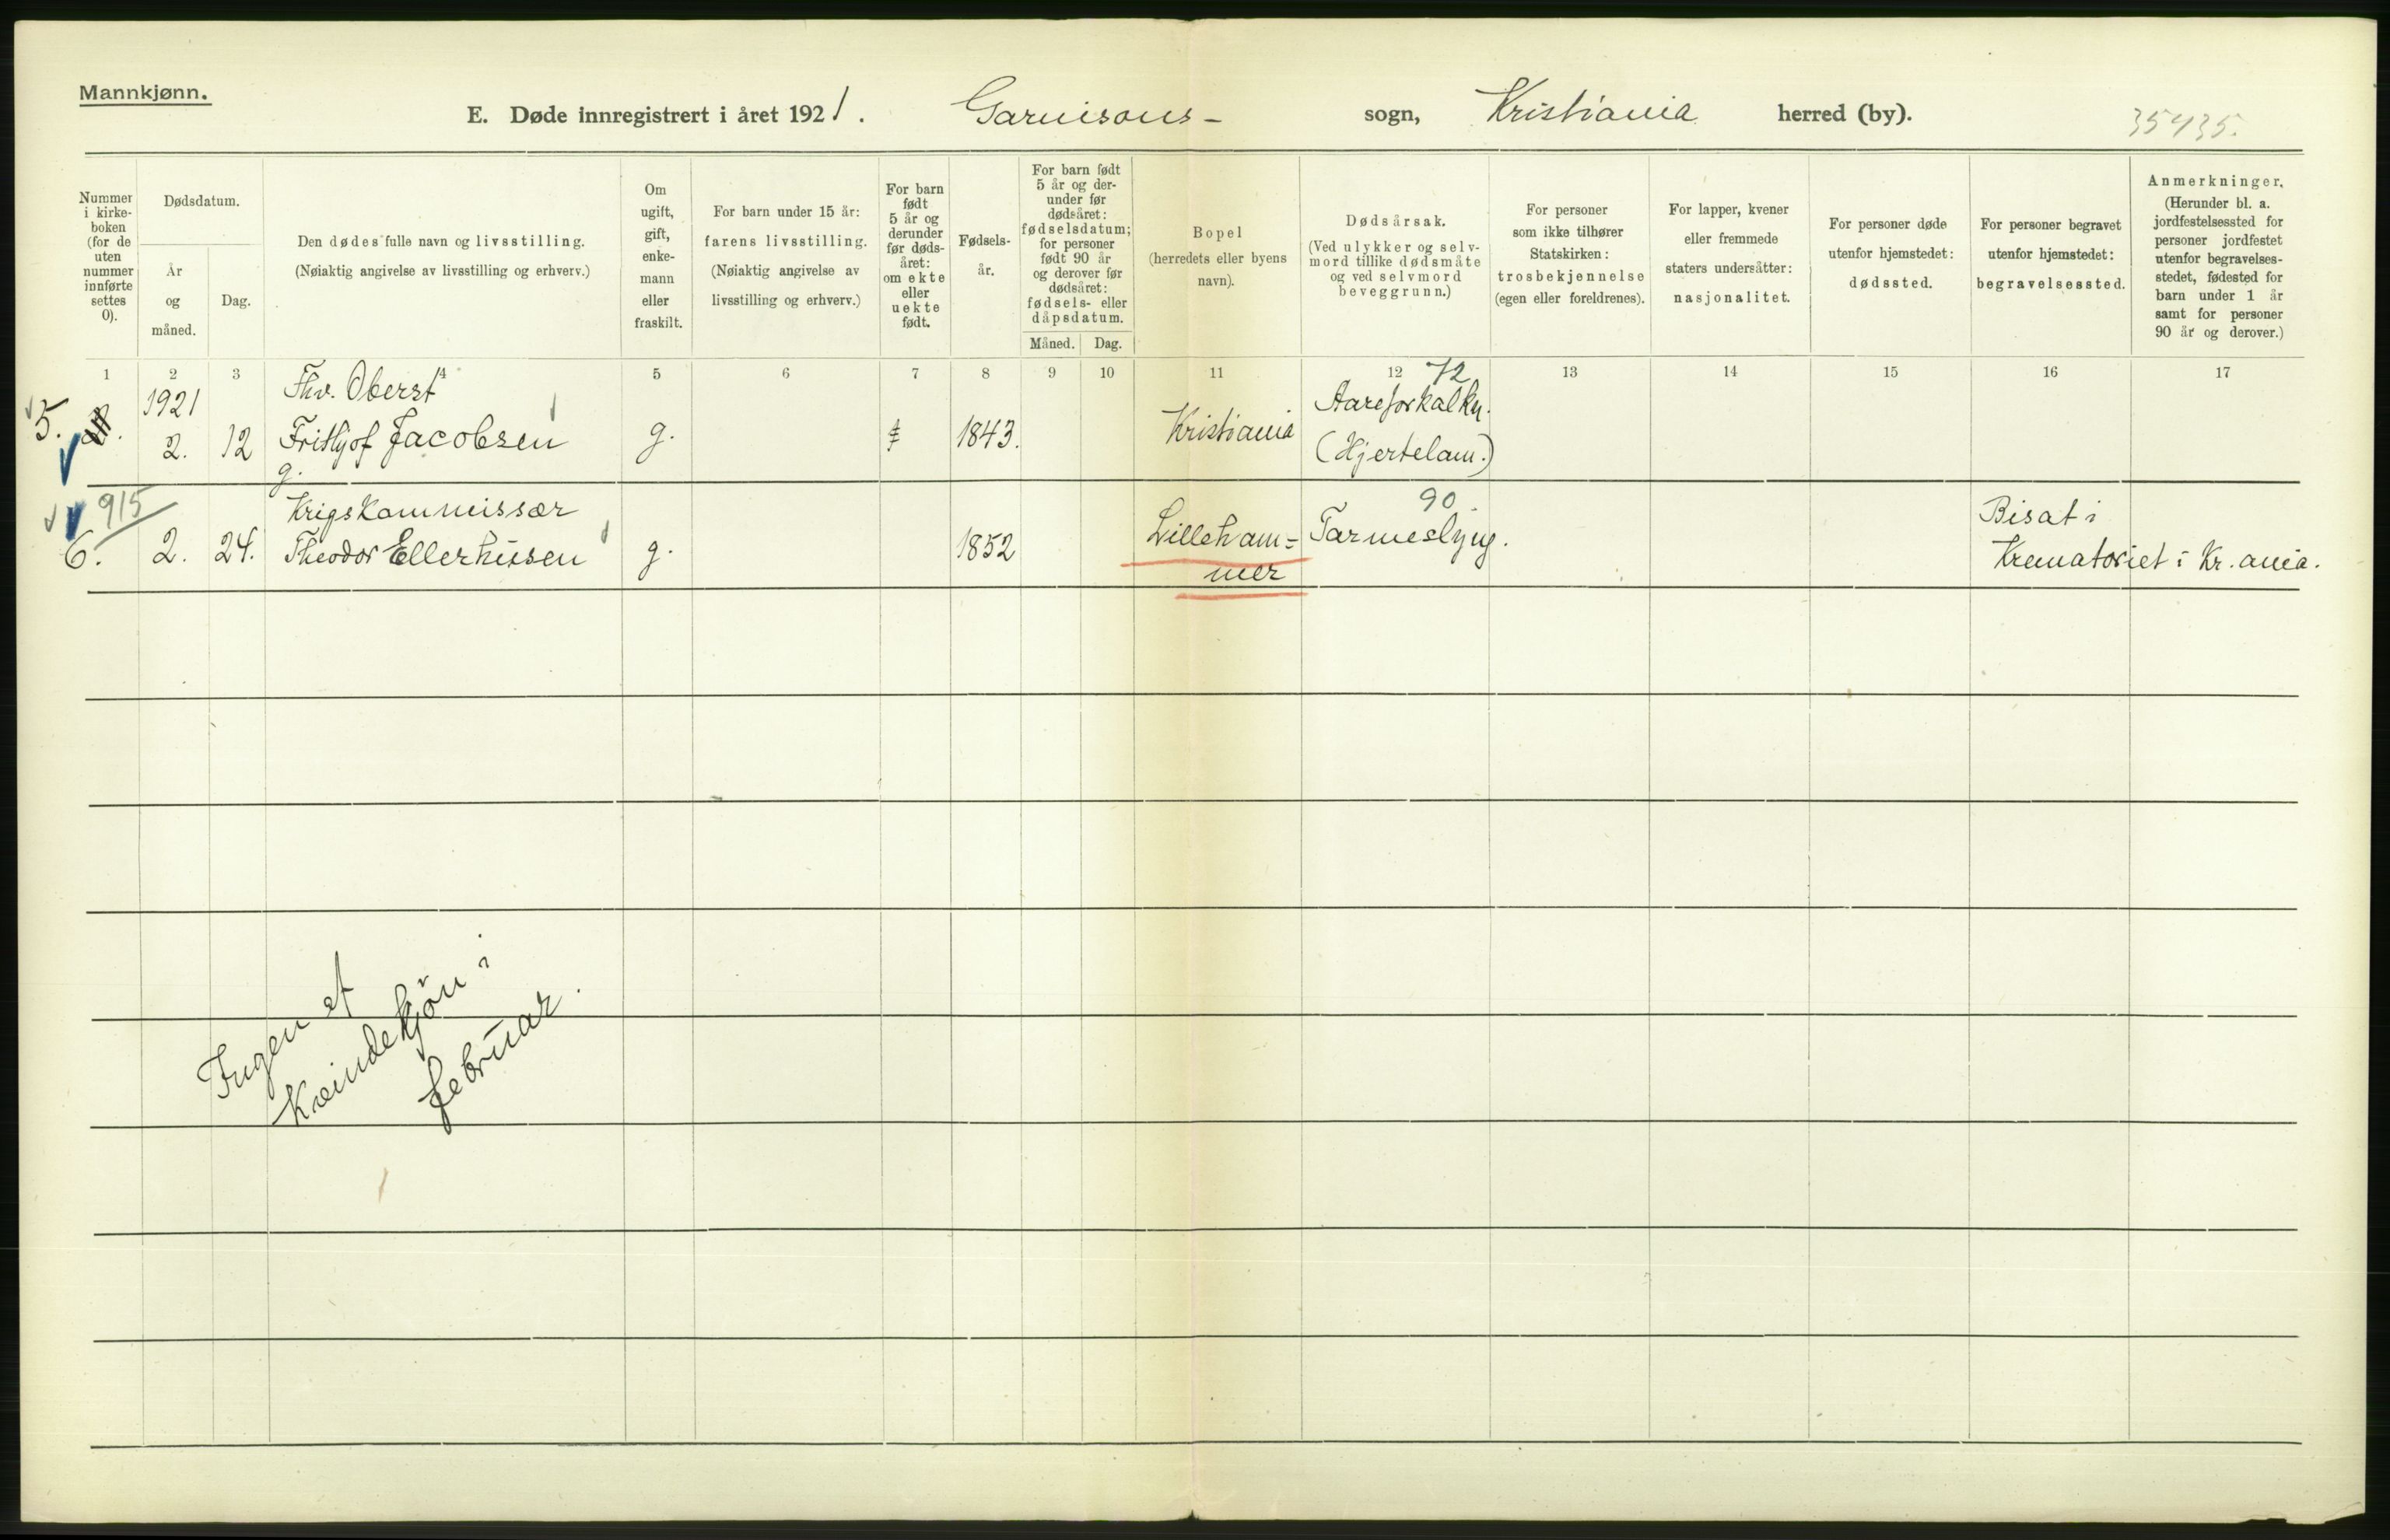 Mannkjønn.
E. Døde innregistrert i året 1921. Garnisons- sogn, Kristiania herred (by). 35435.
Nummer i kirke-boken (for de uten nummer innførte settes 0).
Dødsdatum.
År og måned.
Dag.
Den dødes fulle navn og livsstilling.
(Nøiaktig angivelse av livsstilling og erhverv.)
Om ugift, gift, enke-mann eller fraskilt.
For barn under 15 år: farens livsstilling. (Nøiaktig angivelse av livsstilling og erhverv.)
For barn født 5 år og derunder før døds-året: om ekte eller uekte født.
Fødsels-år.
For barn født 5 år og der-under før dødsåret: fødselsdatum; for personer født 90 år og derover før dødsåret: fødsels- eller dåpsdatum.
Måned. Dag.
Bopel (herredets eller byens navn).
Dødsårsak. (Ved ulykker og selv-mord tillike dødsmåte og ved selvmord beveggrunn.)
For personer som ikke tilhører Statskirken: trosbekjennelse (egen eller foreldrenes).
For lapper, kvener eller fremmede staters undersåtter: nasjonalitet.
For personer døde utenfor hjemstedet: dødssted.
For personer begravet utenfor hjemstedet: begravelsessted.
Anmerkninger. (Herunder bl. a. jordfestelsessted for personer jordfestet utenfor begravelses-stedet, fødested for barn under 1 år samt for personer 90 år og derover.)
1 2 3 4 5 6 7 8 9 10 11 12 13 14 15 16 17
1921 Fhv. Oberst 72 Aareforkalkn.
5. 2. 12 Frithjof Jacobsen g. 1843. Kristiania (Hjertelam.)
g.
915 Krigskommissær 90 Bisat i
6. 2. 24. Theodor Ellerhusen g. 1852 Lilleham= Tarmeslyng. Krematoriet i Kr.ania.
mer
Ingen af
Kvindekjön i
februar.